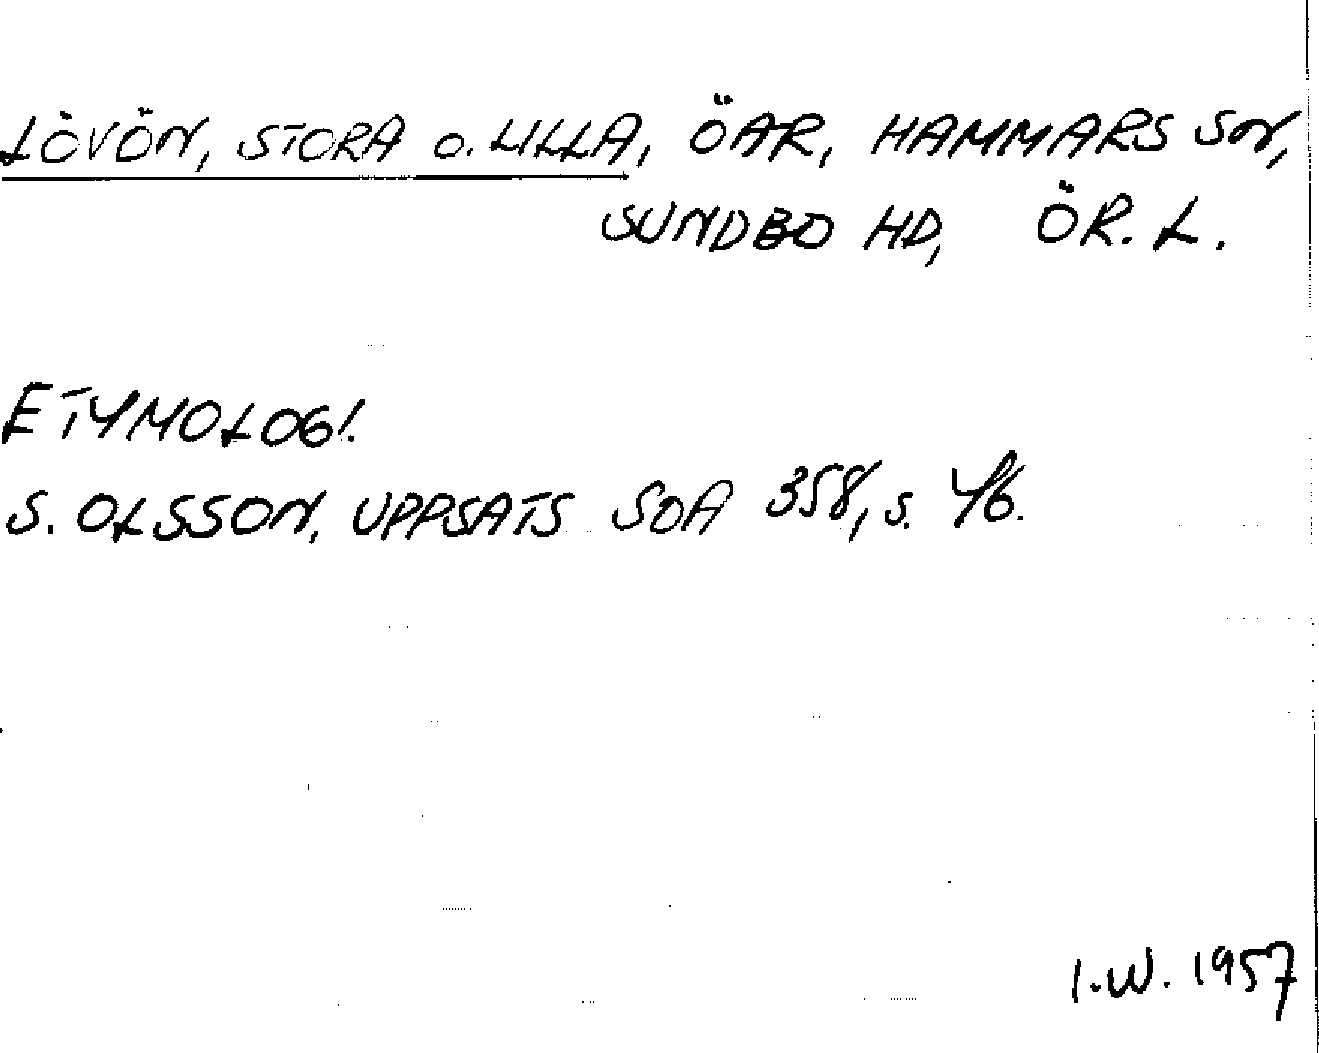 LÖVÖN, STORA o. LILLA, ÖAR, HAMMARS SN,
SUNDBO HD, ÖR. L.
ETYMOLOGI.
S. OLSSON, UPPSATS SOA 358, s. 46.
I.W. 1957